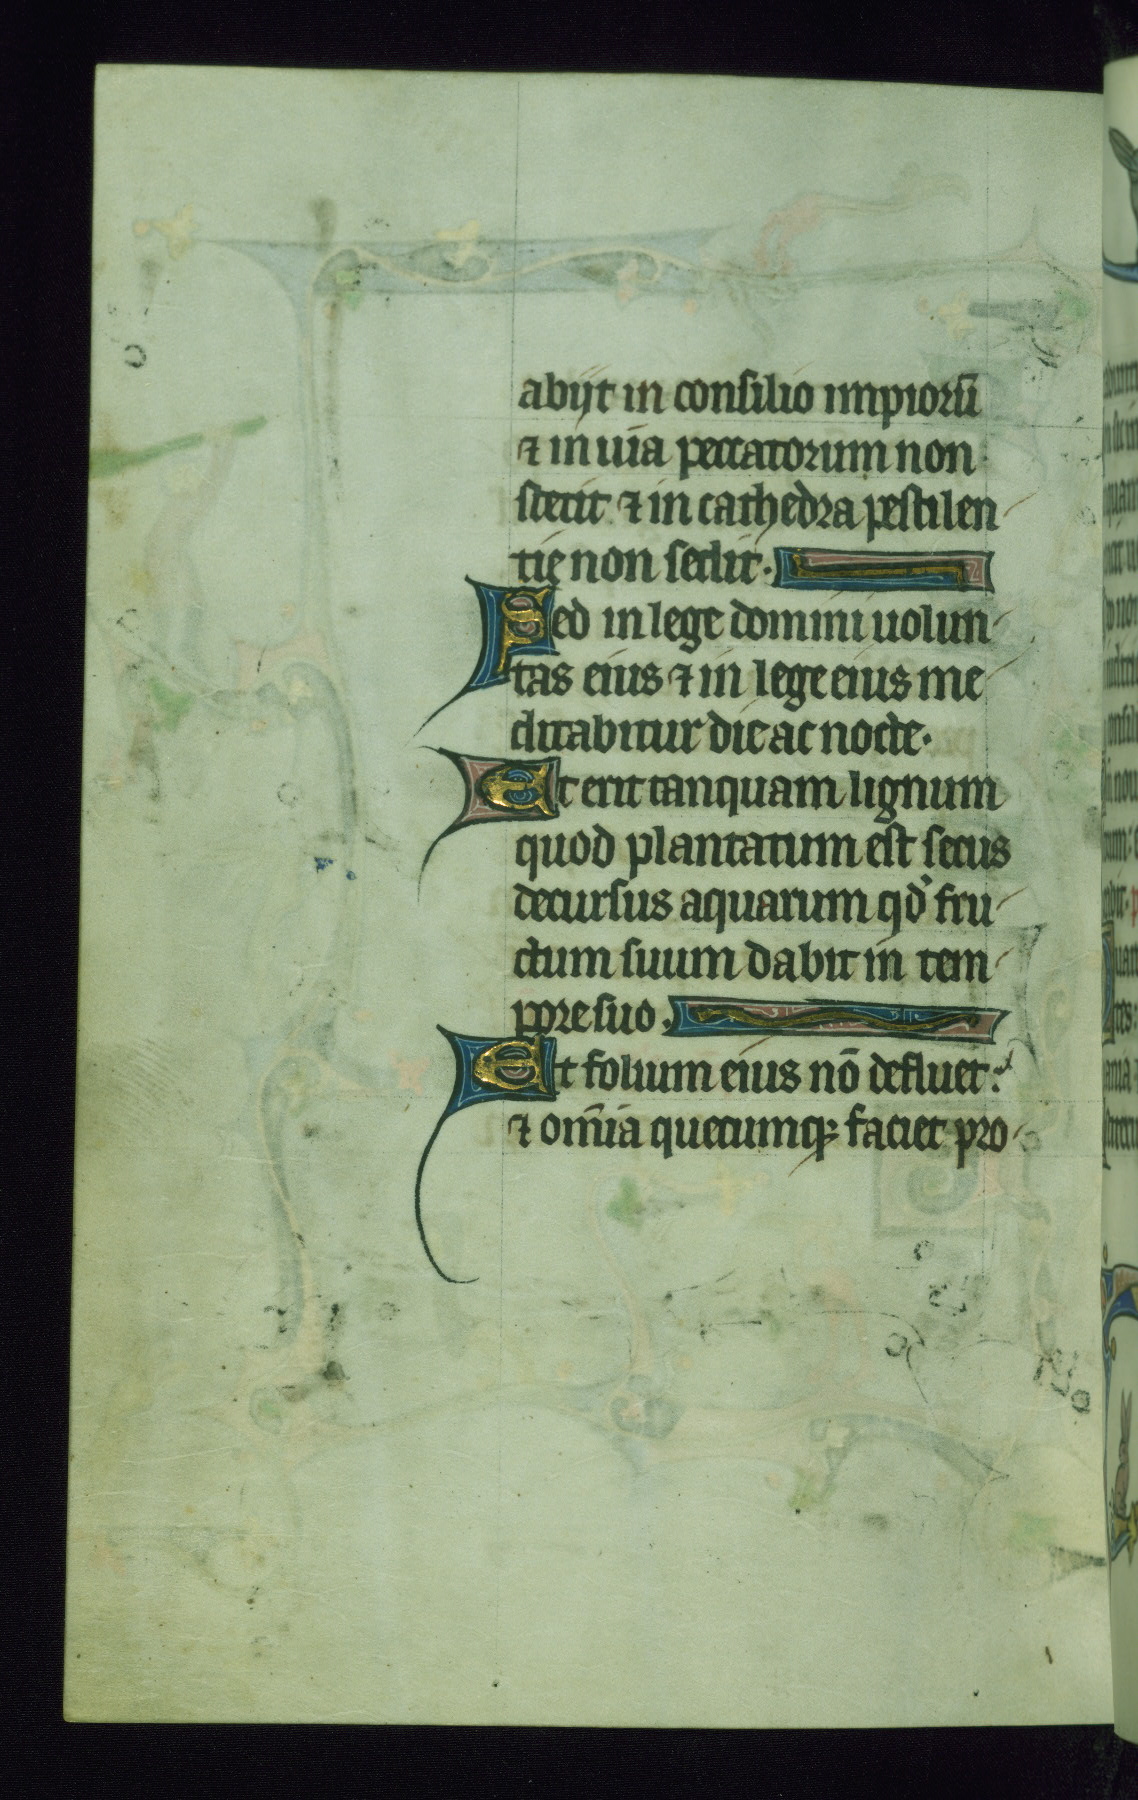 abijt in consilio impiorū
⁊ in uia peccatorum non
stetit ⁊ in cathedra pestilen
tie non sedit.
Sed in lege domini uolun
tas eius ⁊ in lege eius me
ditabitur die ac nocte.
Et erit tanquam lignum
quod plantatum est secus
decursus aquarum qd̓ fru
ctum suum dabit in tem
pore suo.
Et folium eius nō defluet:
⁊ om̄ia quecumqꝫ faciet pro